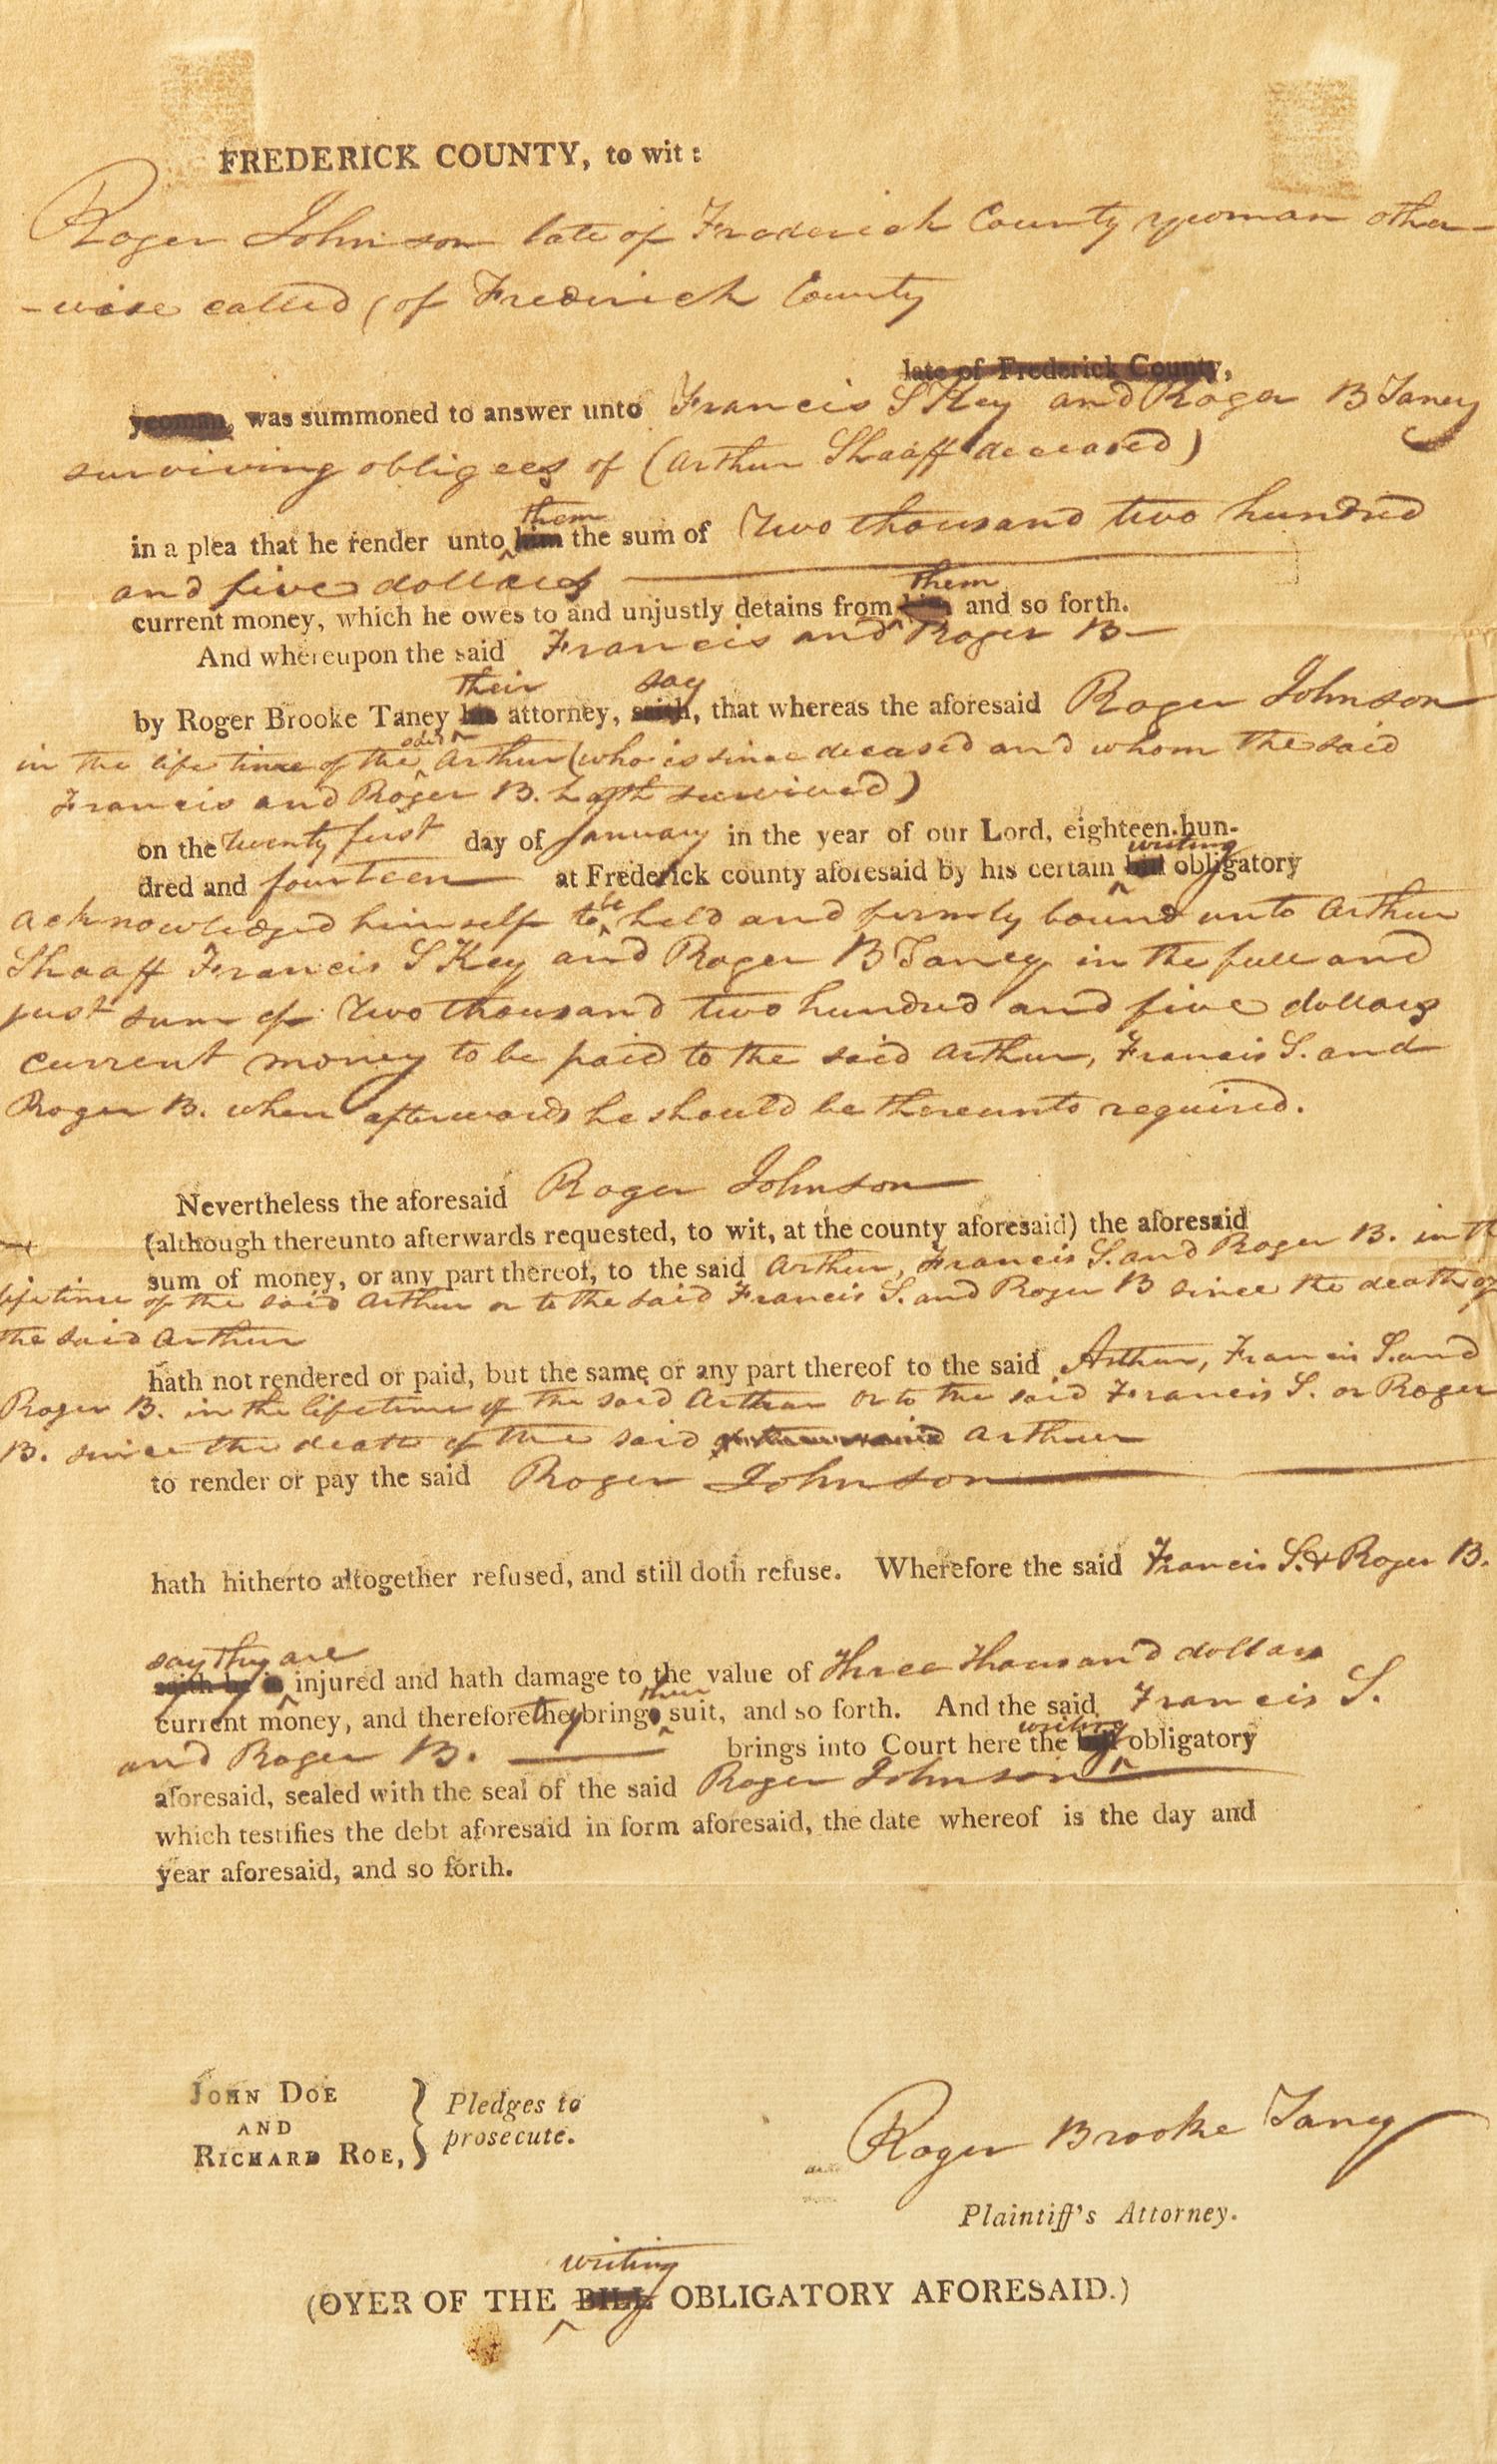 FREDERICK COUNTY, to wit:
Roger Johnson late of Frederick County yeoman other-
-wise called (of Frederick County
late of Frederick County,
yeoman, was summoned to answer unto Francis S Key and Roger B Taney
surviving obligees of (Arthur Shaaff deceased)
them
in a plea that he render unto him the sum of Two thousand two hundred
and five dollars
them
current money, which he owes to and unjustly detains from him and so forth.
And whereupon the said Francis and Roger B
their say
by Roger Brooke Taney his attorney, saith, that whereas the aforesaid Roger Johnson
in the life time of the said Arthur (who is since deceased and whom the said
Francis and Roger B. hath survived)
on the twenty first day of January in the year of our Lord, eighteen hun-
writing
dred and fourteen at Frederick county aforesaid by his certain bill obligatory
acknowledged himself to be held and firmly bound unto Arthur
Shaaff Francis S Key and Roger B Taney in the full and
just sum of Two thousand two hundred and five dollars
current money to be paid to the said Arthur, Francis S. and
Roger B. when afterwards he should be thereunto required.
Nevertheless the aforesaid Roger Johnson
(although thereunto afterwards requested, to wit, at the county aforesaid) the aforesaid
sum of money, or any part thereof, to the said Arthur, Francis S. and Roger B. in the
life time of the said Arthur or to the said Francis S. and Roger B since the death of
the said Arthur
hath not rendered or paid, but the same or any part thereof to the said Arthur, Francis S. and
Roger B. in the lifetime of the said Arthur or to the said Francis S. or Roger
B. since the death of the said Arthur
to render or pay the said Roger Johnson
hath hitherto altogether refused, and still doth refuse. Wherefore the said Francis S. & Roger B.
say they are
saith he is injured and hath damage to the value of Three Thousand dollars
their
current money, and therefore they brings suit, and so forth. And the said Francis S.
writing
and Roger B. brings into Court here the bill obligatory
aforesaid, sealed with the seal of the said Roger Johnson
which testifies the debt aforesaid in form aforesaid, the date whereof is the day and
year aforesaid, and so forth.
JOHN DOE
AND
RICHARD ROE,
} Pledges to
prosecute.
Roger Brooke Taney
Plaintiff's Attorney.
writing
(OYER OF THE BILL OBLIGATORY AFORESAID.)